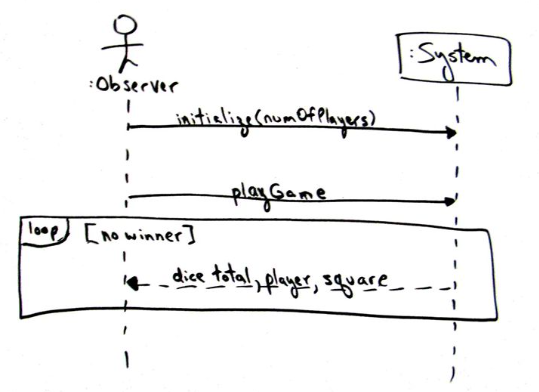 :Observer
:System
initialize(numOfPlayers)
playGame
loop [no winner]
dice total, player, square